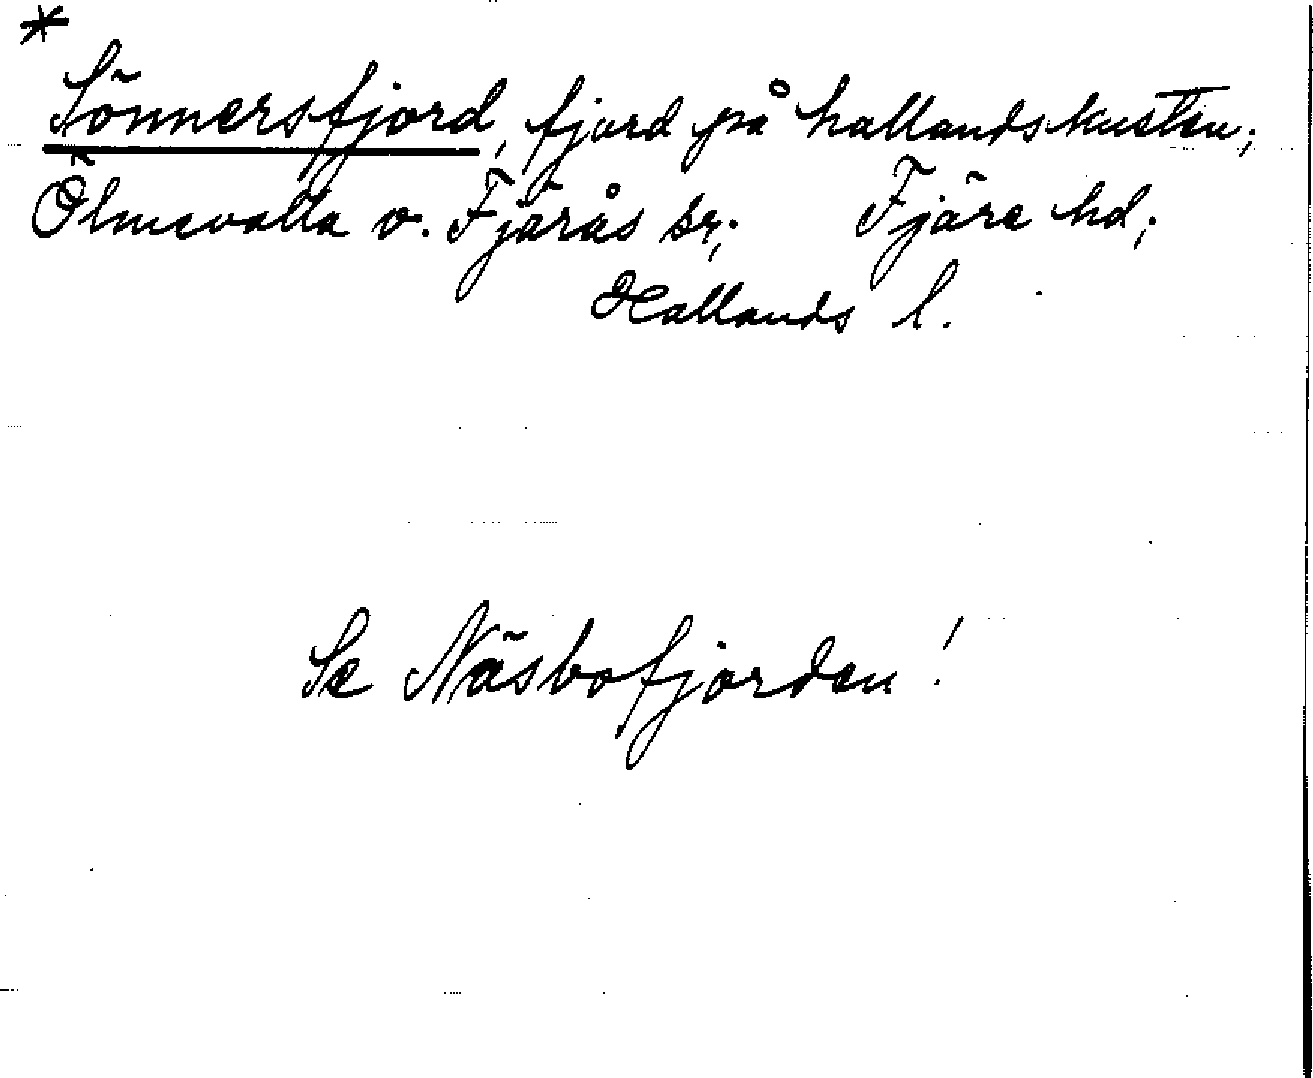 *
Sönnersfjord, fjord på hallandskusten;
Ölmevalla o. Fjärås sr; Fjäre hd;
Hallands l.
Se Näsbofjorden!